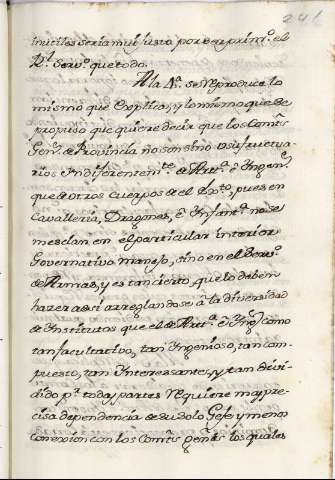 241
inutiles seria mui justo por ser prim.º el
R.l Serv.º que todo.
A la 4.ª se reproduce lo
mismo que explica, y lo mismo que se
propuso que quiere decir que los Com.tes
Gen.s de Provincia no son sino
Indiferentem.te de Art.ª é Ingen.s
que de otros cuerpos de el Exto, pues en
Cavalleria, Dragones, é Infant.ª no se
mesclan en el particular interior
Governativo manejo, sino en el Serv.º
de Armas, y es tan cierto, que lo deben
hazer assi arreglandose â la diversidad
de Institutos que el de Art.ª é Ing.s como
tan facultativo, tan Ingenioso, tan com-
puesto, tan Interessante, y tan devi-
dido p.r todas partes requiere mas pre-
cisa dependencia de su solo Gefe y menos
conexion con los Com.tes gen.es los quales